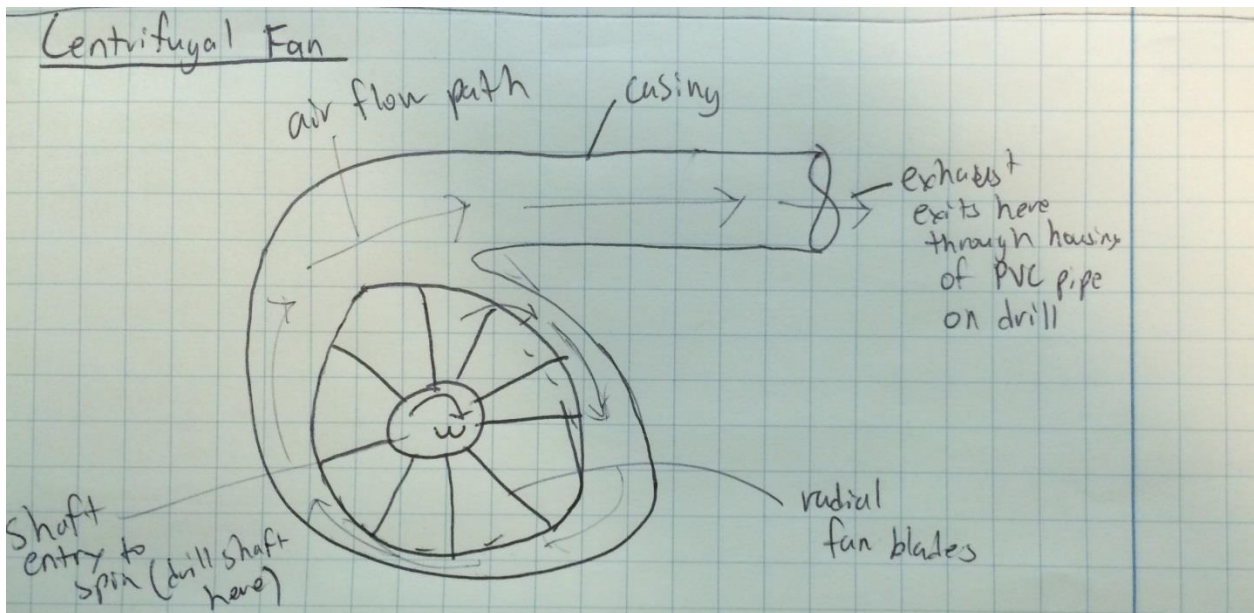 Centrifugal Fan
air flow path
casing
exhaust
exits here
through housing
of PVC pipe
on drill
ω
radial
fan blades
shaft
entry to
spin (drill shaft
here)